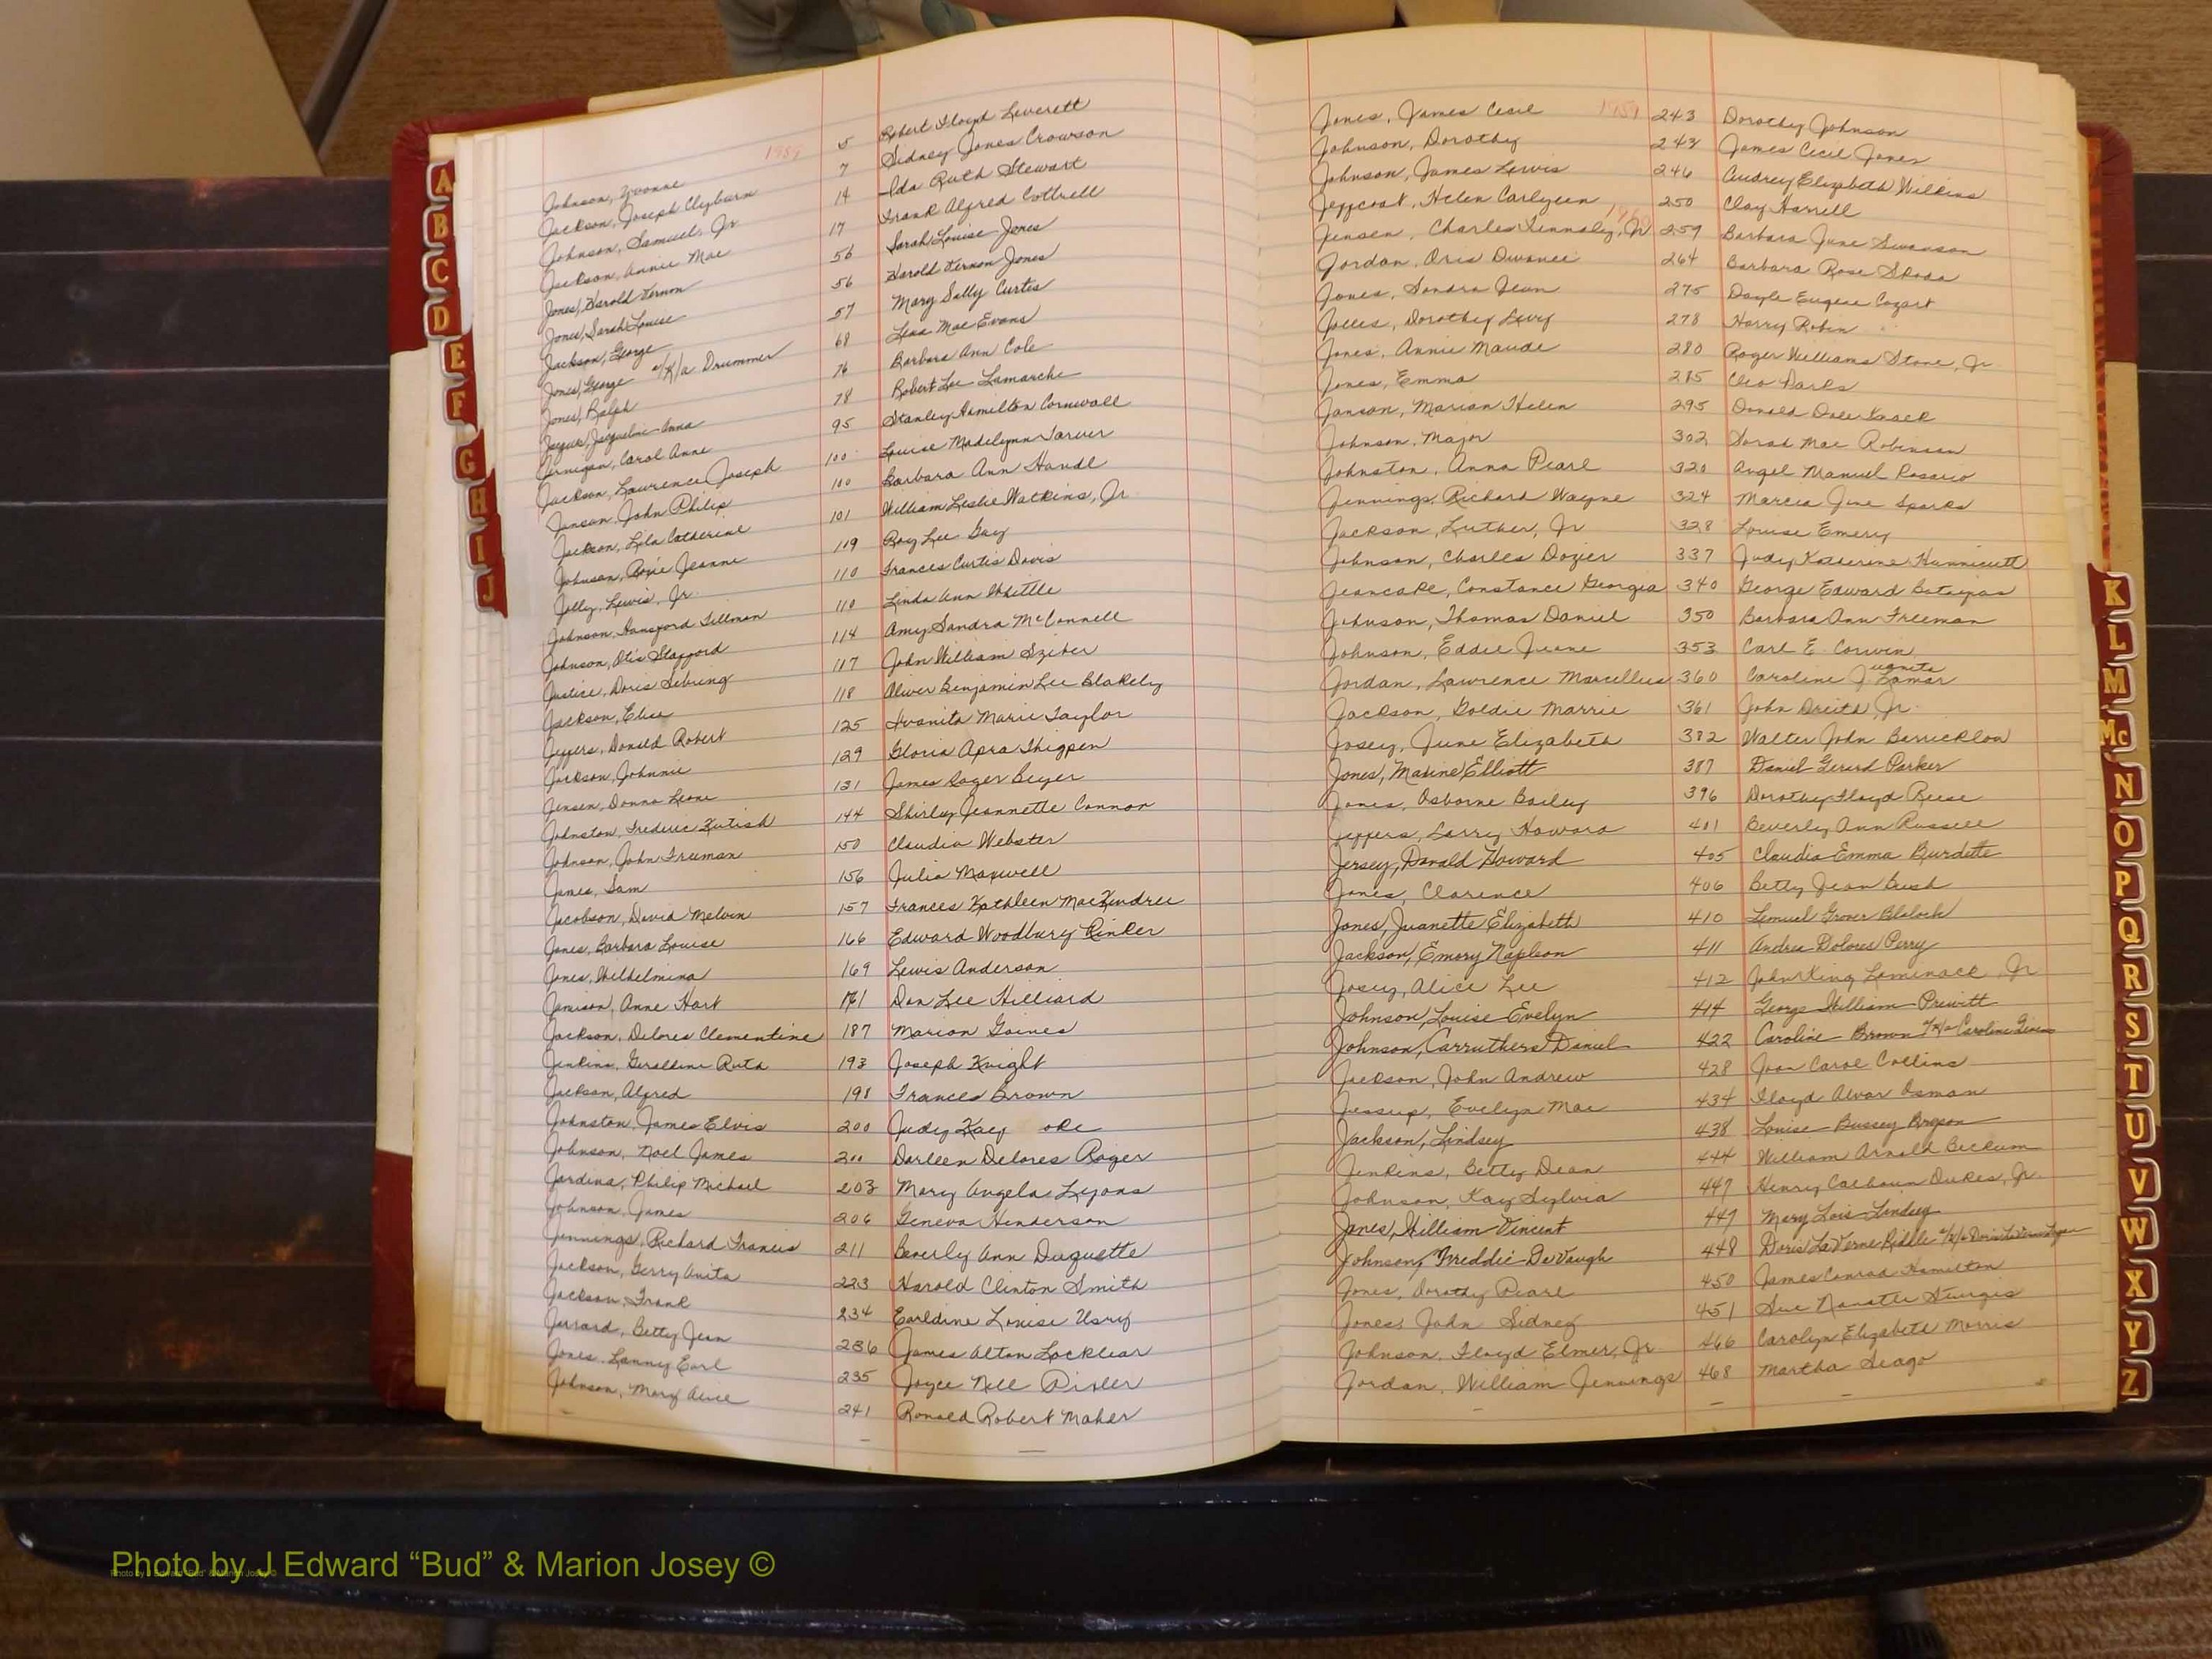 1959
Johnson, Yvonne 5 Robert Floyd Leverett
Jackson, Joseph Clyburn 7 Sidney Jones Crowson
Johnson, Samuel, Jr 14 Ida Ruth Stewart
Jackson, Annie Mae 17 Frank Alfred Cottrell
Jones, Harold Vernon 56 Sarah Louise Jones
Jones, Sarah Louise 56 Harold Vernon Jones
Jackson, George 57 Mary Sally Curtis
Jones, George a/k/a Drummer 68 Lena Mae Evans
Jones, Ralph 76 Barbara Ann Cole
Jacqueline Anna 78 Robert Lee Lamarche
Jernigan, Carol Anne 95 Stanley Hamilton Cornwall
Jackson, Lawrence Joseph 100 Louise Madelynn Tarver
Janson, John Philip 100 Barbara Ann
Jackson, Lila Catherine 101 William Leslie Watkins, Jr.
Johnson, Roxie Jeanne 109 Roy Lee Guy
Jolly, Lewis, Jr. 110 Frances Curtis Davis
Johnson, Hansford Tillman 110 Linda Ann Whittle
Johnson, Otis Stafford 114 Amy Sandra McConnell
Justice, Doris Sebring 117 John William
Jackson, Elise 118 Oliver Benjamin Lee Blakely
Jeffers, Donald Robert 125 Juanita Marie Taylor
Jackson, Johnnie 129 Gloria Apra Thigpen
Jensen, Donna Leone 131 James Roger Beyer
Johnston, Frederic 144 Shirley Jeannette Connor
Johnson, John Truman 150 Claudia Webster
James, Sam 156 Julia Maxwell
Jacobson, David Melvin 157 Frances Kathleen MacKendree
Jones, Barbara Louise 166 Edward Woodbury Rinker
Jones, Wilhelmina 169 Lewis Anderson
Jamison, Anne Hart Don Lee Hilliard
Jackson, Delores Clementine 187 Marion Goines
Jenkins, Geraldine Ruth 193 Joseph Knight
Jackson, Alfred 198 Frances Brown
Johnston, James Elvis 200 Judy Kay
Johnson, Noel James 200 Darleen Delores Roger
Jardina, Philip Michael 203 Mary Angela Lyons
Johnson, James 206 Geneva Henderson
Jennings, Richard Francis 211 Beverly Ann Duquette
Jackson, Gerry Anita 223 Harold Clinton Smith
Jackson, Frank 234 Earldine Louise Usry
Jarrard, Betty Jean 236 James Alton Locklear
Jones, Lanny Earl 235 Joyce Nell Pixler
Johnson, Mary Alice 241 Ronald Robert Maher
Jones, James Cecil 1959 243 Dorothy Johnson
Johnson, Dorothy 243 James Cecil Jones
Johnson, James Lewis 246 Audrey Elizabeth Wilkins
Jeffcoat, Helen Carlyeen 250 Clay Harrell
Jensen, Charles Jr 259 Barbara June Swanson
Jordan, Oris Dwanee 264 Barbara Rose
Jones, Sandra Jean 275 Dayle Eugene Cozart
Jolles, Dorothy Levy 278 Harry Robin
Jones, Annie Maude 280 Roger Williams Stone, Jr
Jones, Emma 285 Cleo Parks
Janson, Marian Helen 295 Donald Dale
Johnson, Major 302 Sarah Mae Robinson
Johnston, Anna Pearl 320 Angel Manuel Rosario
Jennings, Richard Wayne 324 Marcia June Sparks
Jackson, Luther, Jr 328 Louise Emery
Johnson, Charles Dozier 337 Judy Katherine Hunnicutt
Jeancake, Constance Georgia 340 George Edward
Johnson, Thomas Daniel 350 Barbara Ann Freeman
Johnson, Eddie Jeane 353 Carl E. Corwin
Jordan, Lawrence Marcellus 360 Caroline Juanita Lamar
Jackson, Goldie Marrie 361 John Dreith, Jr.
Josey, June Elizabeth 382 Walter John Barricklow
Jones, Maxine Elliott 387 Daniel Gerard Parker
Jones, Osborne Bailey 396 Dorothy Floyd Reese
Jeffers, Larry Howard 401 Beverly Ann Russell
Jersey, Donald Howard 405 Claudia Emma Burdette
Jones, Clarence 406 Betty Jean Bush
Jones, Juanette Elizabeth 410 Lemuel Grover Blalock
Jackson, Emory Napleon 411 Andrea Dolores Perry
Josey, Alice Lee 412 John King Lominack, Jr
Johnson, Louise Evelyn 414 George William Prewitt
Johnson, Carruthers Daniel 422 Caroline Brown a/k/a Caroline
Jackson, John Andrew 428 Joan Carol Collins
Jessup, Evelyn Mae 434 Floyd Alvar Osman
Jackson, Lindsey 438 Louise Bussey Bryson
Jenkins, Betty Dean 444 William Arnold Beckum
Johnson, Kay Sylvia 447 Henry Calhoun Dukes, Jr.
Jones, William Vincent 447 Mary Lois Lindsey
Johnson, Freddie DeVaugh 448 Doris LaVerne Riddle a/k/a Doris LaVerne
Jones, Dorothy Pearl 450 James Conrad Hamilton
Jones, John Sidney 451 Sue Nanette Sturgis
Johnson, Floyd Elmer, Jr 466 Carolyn Elizabeth Morris
Jordan, William Jennings 468 Martha Seago
A
B
C
D
E
F
G
H
I
J
K
L
M
Mc
N
O
P
Q
R
S
T
U
V
W
X
Y
Z
Photo by J Edward “Bud” & Marion Josey ©
Photo by J Edward "Bud" & Marion Josey ©